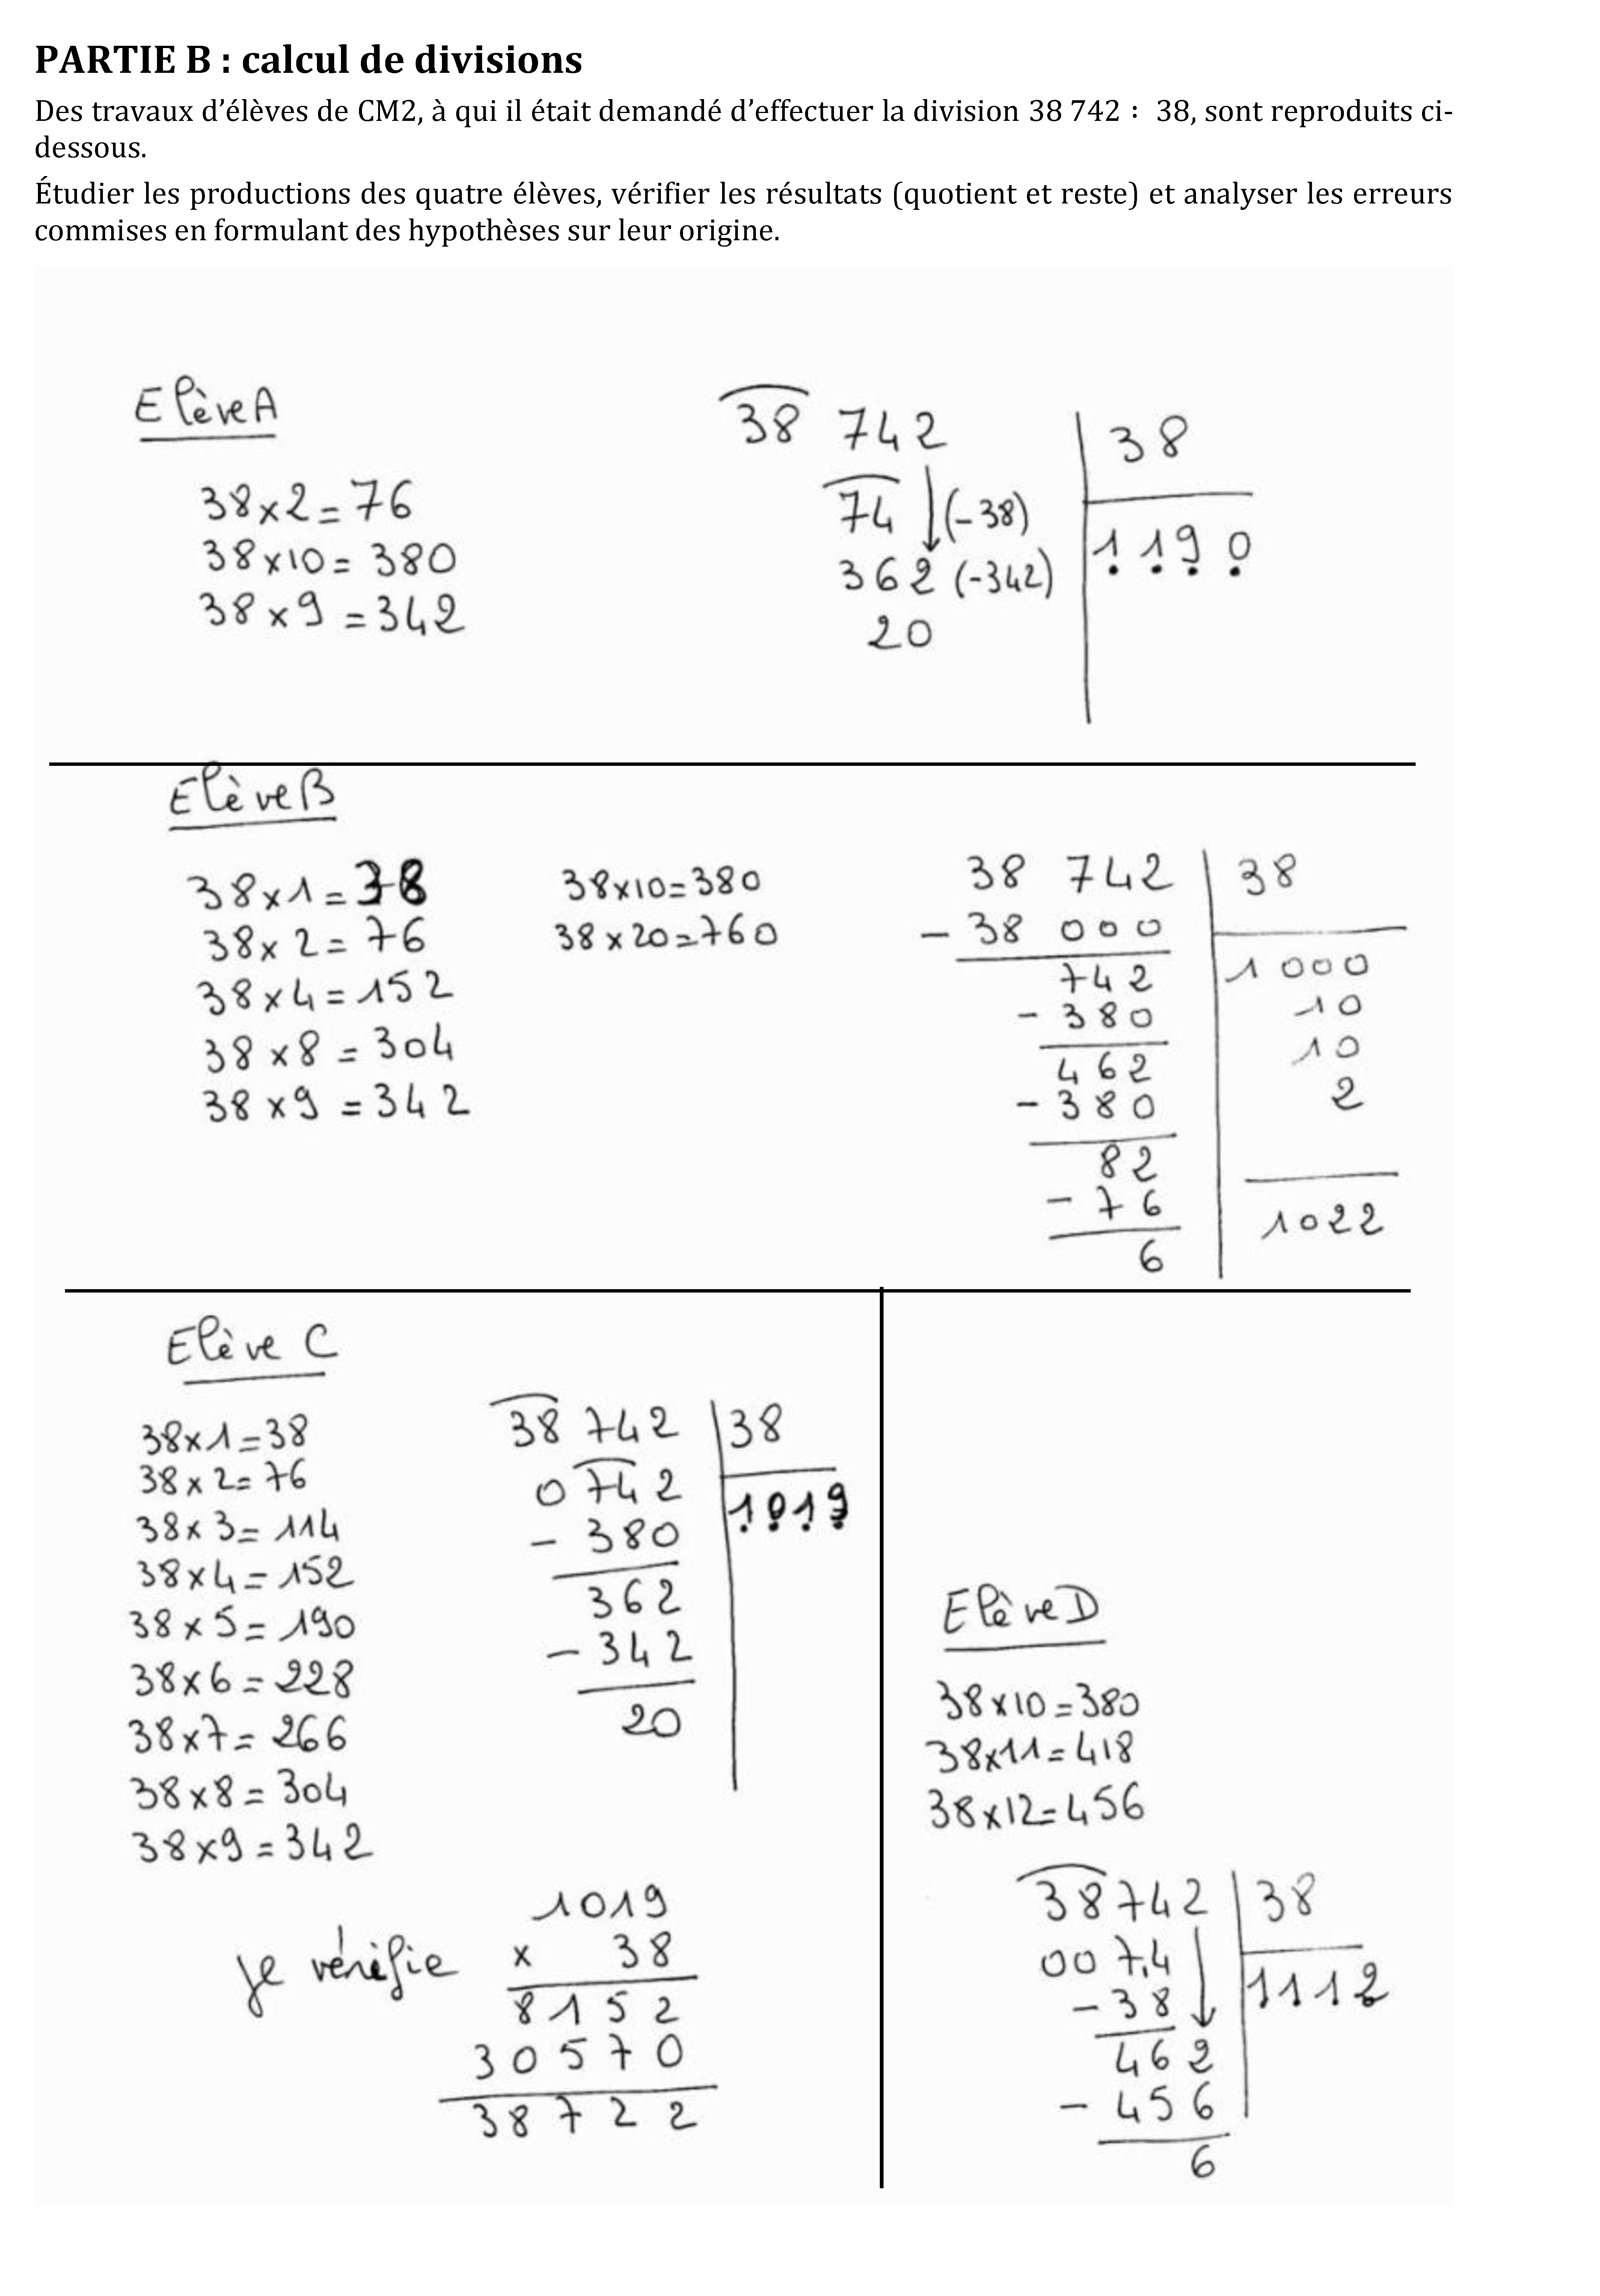 PARTIE B : calcul de divisions
Des travaux d’élèves de CM2, à qui il était demandé d’effectuer la division 38 742 : 38, sont reproduits ci-
dessous.
Étudier les productions des quatre élèves, vérifier les résultats (quotient et reste) et analyser les erreurs
commises en formulant des hypothèses sur leur origine.
Elève A
38 x 2 = 76
38 x 10 = 380
38 x 9 = 342
38 742
38
74 (-38)
1 1 9 0
362 (-342)
20
Elève B
38 x 1 = 38
38 x 2 = 76
38 x 4 = 152
38 x 8 = 304
38 x 9 = 342
38 x 10 = 380
38 x 20 = 760
38 742
38
- 38 000
742
1 000
- 380
10
462
10
- 380
2
82
- 76
1022
6
Elève C
38 x 1 = 38
38 x 2 = 76
38 x 3 = 114
38 x 4 = 152
38 x 5 = 190
38 x 6 = 228
38 x 7 = 266
38 x 8 = 304
38 x 9 = 342
38 742
38
0 742
1019
- 380
362
- 342
20
Je vérifie
1019
x 38
8152
30570
38722
Elève D
38 x 10 = 380
38 x 11 = 418
38 x 12 = 456
38742
38
0074
1112
- 38
462
- 456
6